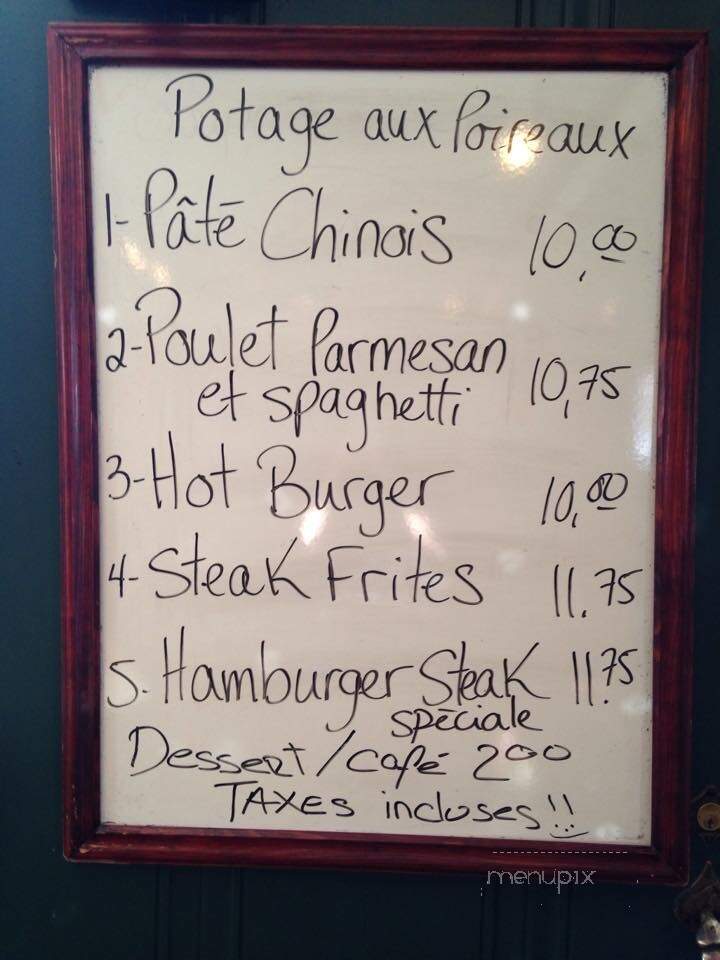 Potage aux Poireaux
1-Pâté Chinois 10,00
2-Poulet Parmesan
et spaghetti 10,75
3-Hot Burger 10,00
4-Steak Frites 11.75
5. Hamburger Steak 11.75
spéciale
Dessert/café 200
TAXES incluses!!
menupix